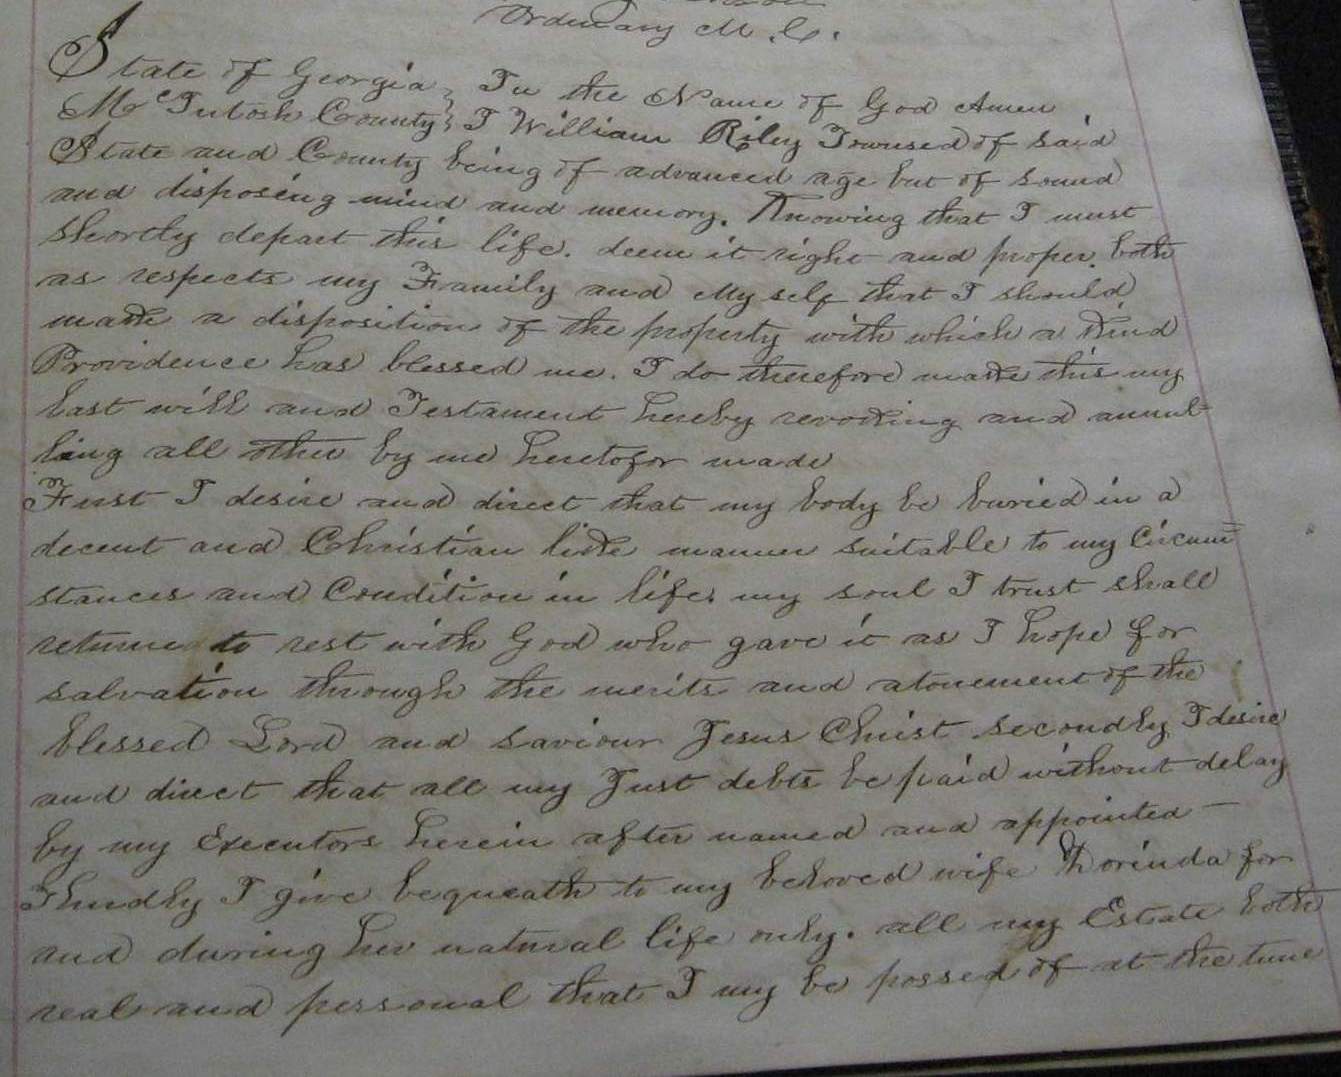 Ordinary M.C.
State of Georgia } In the Name of God Amen
McIntosh County } I William Riley Townsed of said
State and County being of advanced age but of sound
and disposing mind and memory. Knowing that I must
shortly depart this life. deem it right and proper. both
as respects my Family and My self that I should
make a disposition of the property with which a Kind
Providence has blessed me. I do therefore make this my
last will and Testament hereby revoking and annul-
ling all other by me heretofor made
First I desire and direct that my body be buried in a
decent and Christian like manner suitable to my Circum=
stances and Condition in life. my soul I trust shall
returne to rest with God who gave it as I hope for
salvation through the merits and atonement of the
blessed Lord and saviour Jesus Christ secondly I desire
and direct that all my Just debts be paid without delay
by my Executors herein after named and appointed —
Thirdly I give bequeath to my beloved wife Dorinda for
and during her natural life only. all my Estate both
real and personal that I my be possed of at the time